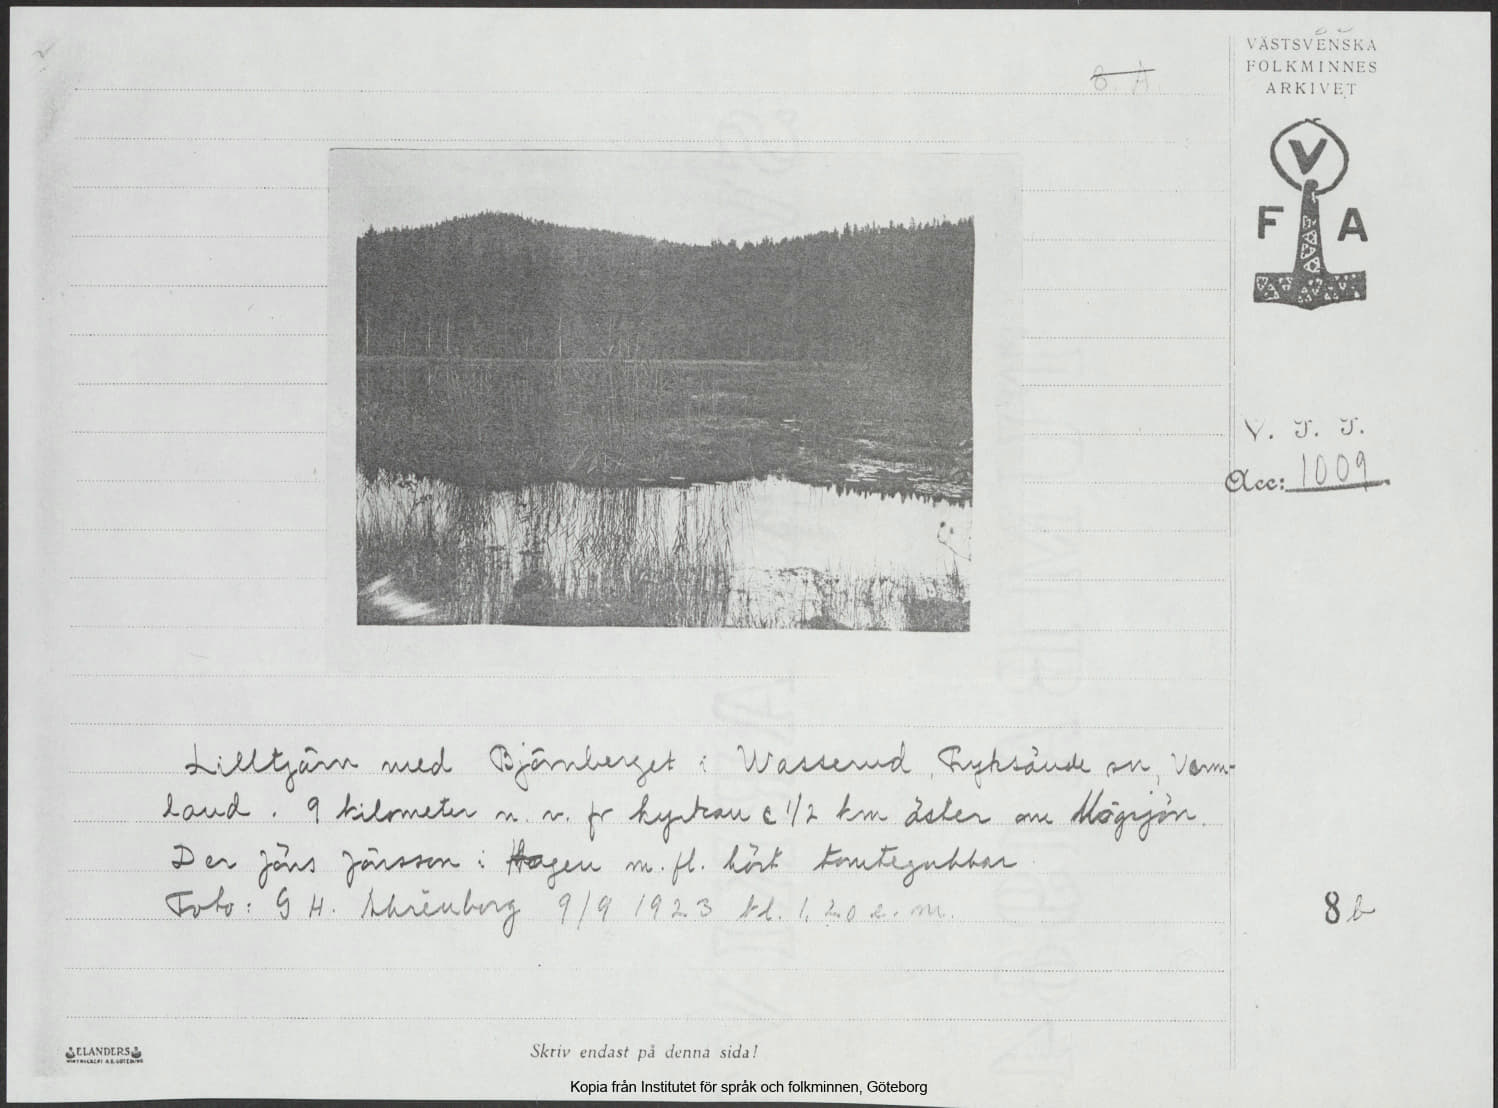 VÄSTSVENSKA
FOLKMINNES
ARKIVET
V
F A
V. S. S.
Acc: 1009
Lilltjärn med Björnberget i Wasserud, Fryksände sn, Värm-
land. 9 kilometer n. v. fr kyrkan c 1/2 km öster om Mögsjön.
Der Jöns Jönsson i Hagen m. fl. hört tomtegubbar
Foto: G H. 9/9 1923 kl. 1,20 e. m.
8 b
ELANDERS
Skriv endast på denna sida!
Kopia från Institutet för språk och folkminnen, Göteborg